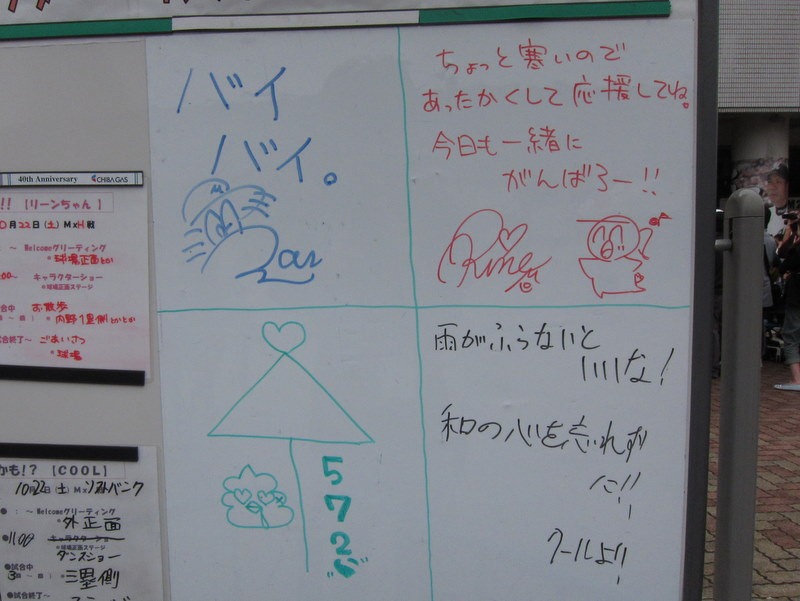 バイ
バイ。
Zou
ちょっと寒いので
あったかくして応援してね。
今日も一緒に
がんばろー!!
Rine
572
雨がふらないと
いいな!
和の心を忘れず
に!!
クールより!
40th Anniversary CHIBA GAS
!! 【リーンちゃん】
月22日(土) M×H戦
: ~ Welcomeグリーティング
*球場正面とか
00~ キャラクターショー
*球場正面ステージ
合中 お散歩
*内野1塁側とかとか
試合終了~ ごあいさつ
*球場
かも!? 【COOL】
10月22日(土) M× ソフトバンク
●: ~ Welcomeグリーティング
*外正面
●11:00 キャラクターショー
*球場正面ステージ
ダンスショー
●試合中
三塁側
●試合終了~